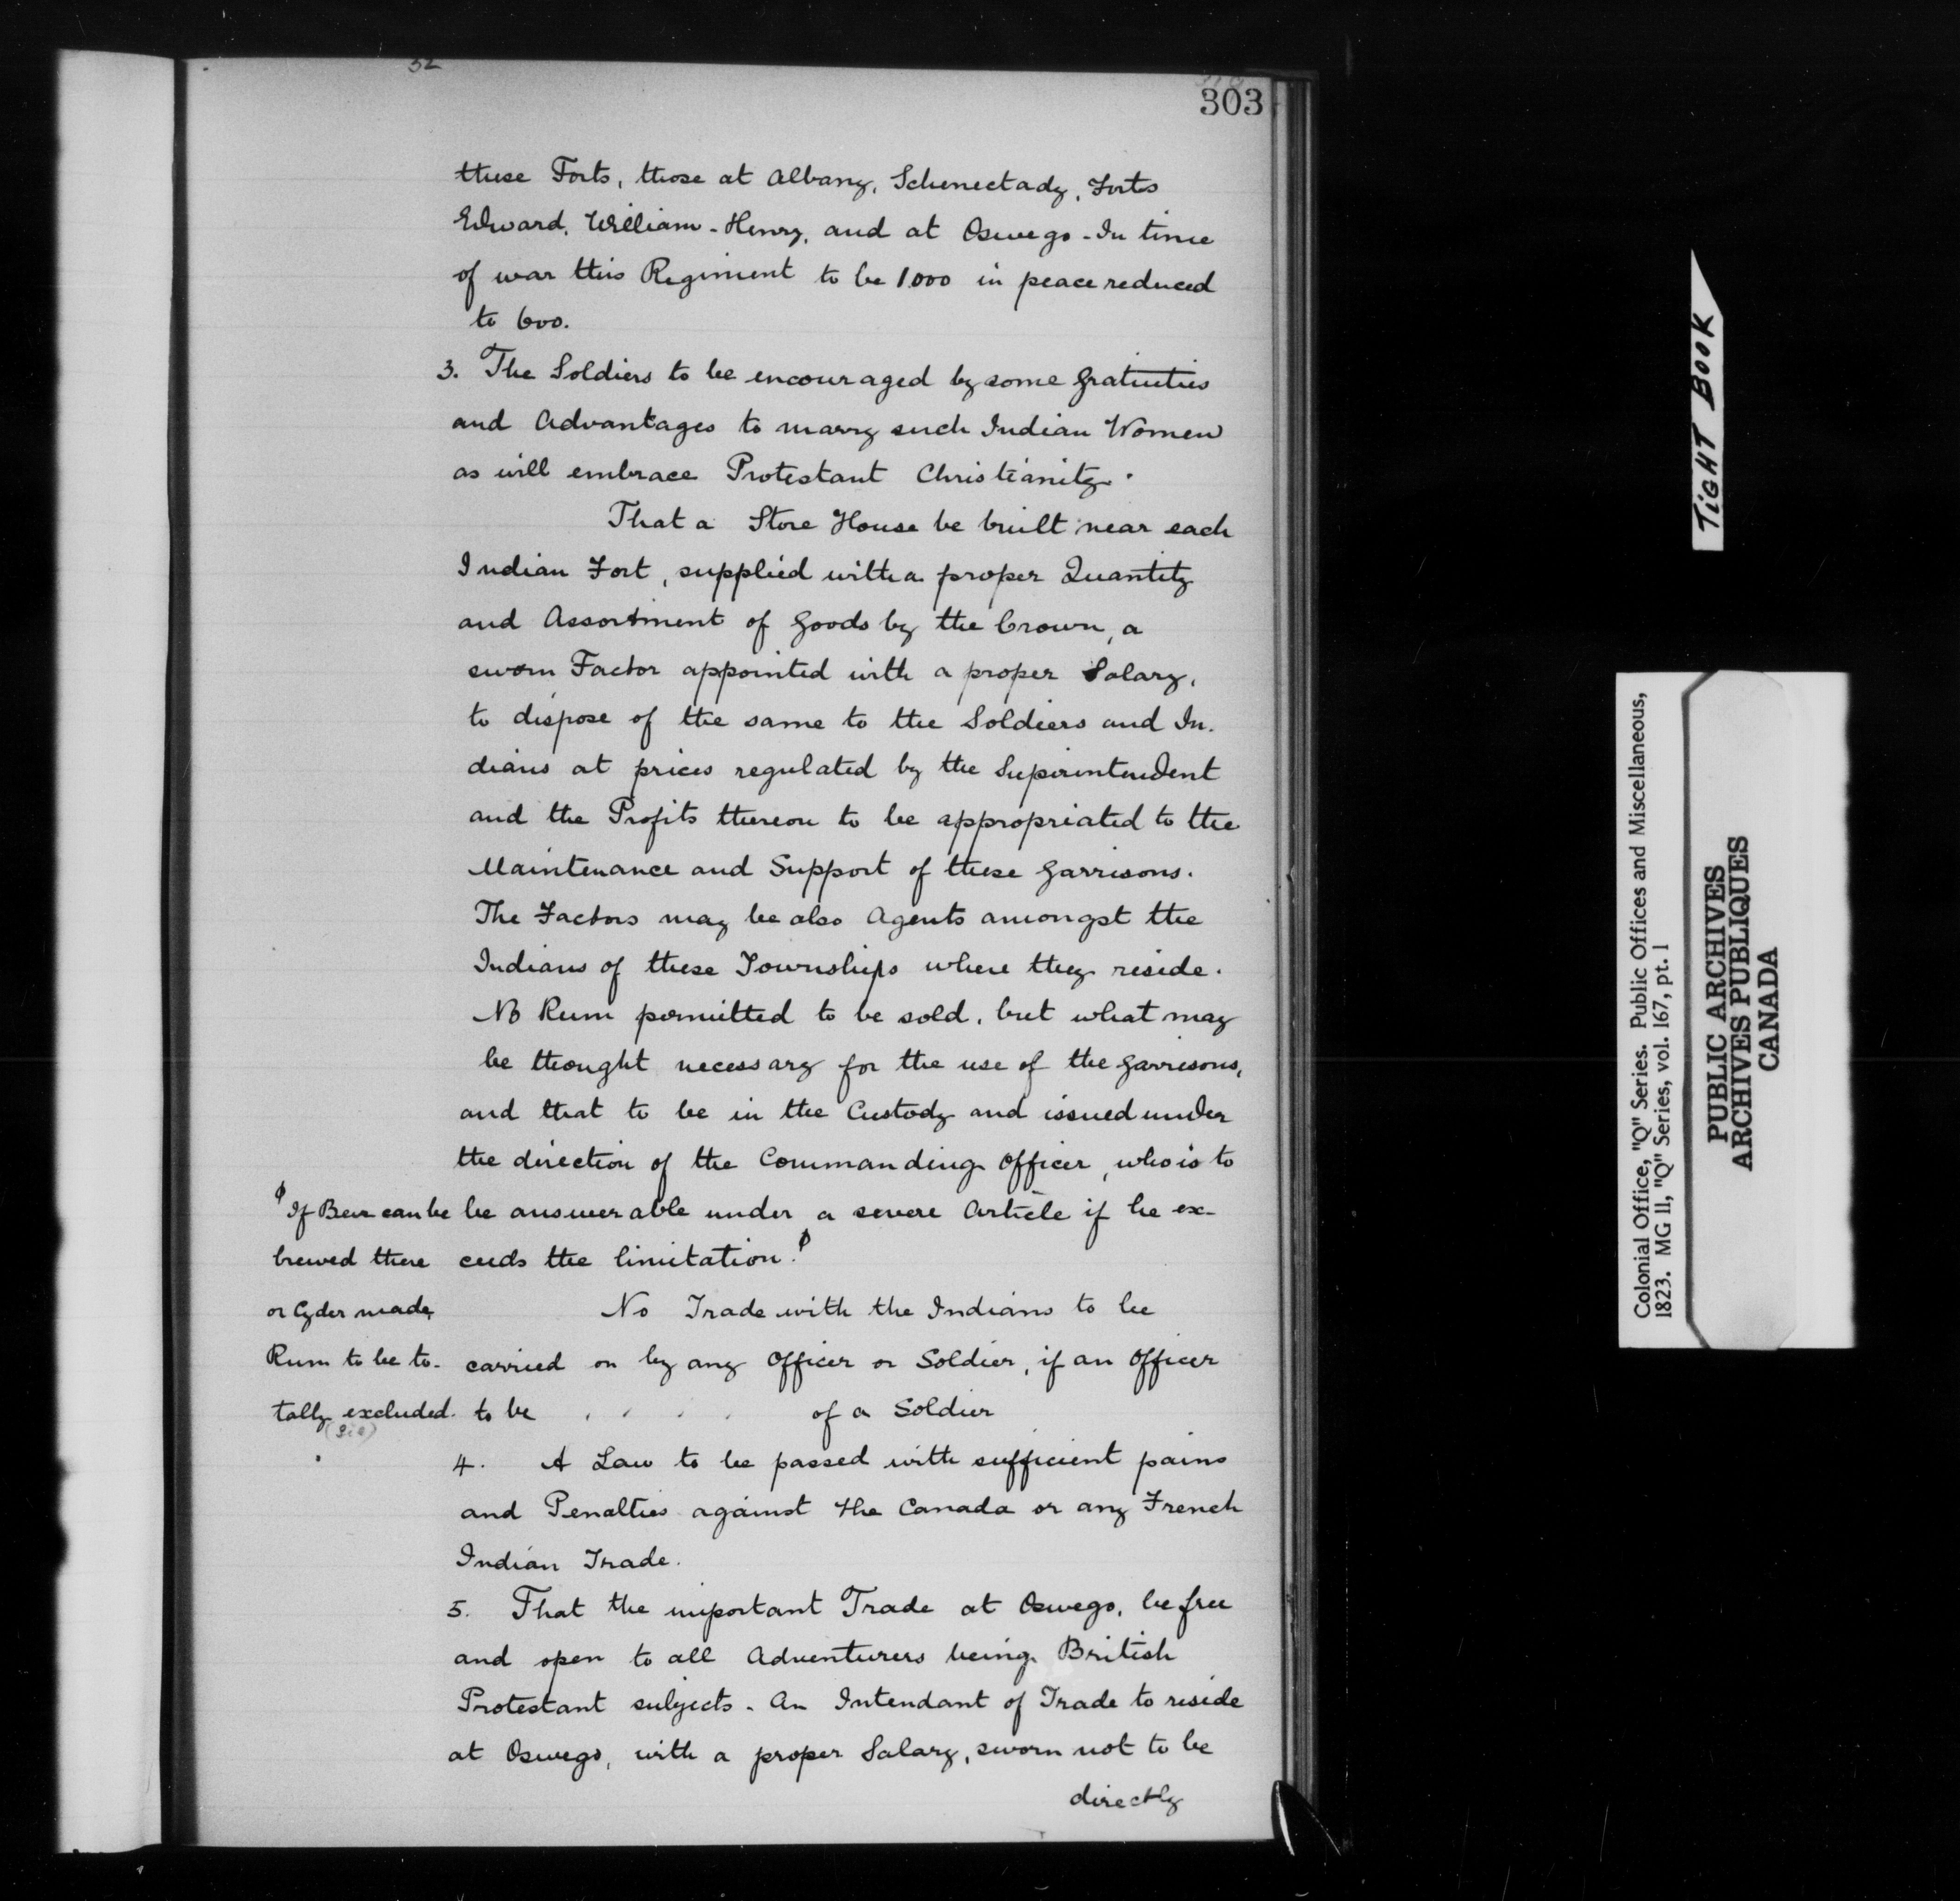 32
303
these Forts, those at Albany, Schenectady, Forts
Edward, William-Henry, and at Oswego - In time
of war this Regiment to be 1000 in peace reduced
to 600.
3. The Soldiers to be encouraged by some Gratuities
and Advantages to marry such Indian Women
as will embrace Protestant Christianity.
That a Store House be built near each
Indian Fort, supplied with a proper Quantity
and Assortment of Goods by the Crown, a
sworn Factor appointed with a proper Salary,
to dispose of the same to the Soldiers and In-
dians at prices regulated by the Superintendent
and the Profits thereon to be appropriated to the
Maintenance and Support of these Garrisons.
The Factors may be also Agents amongst the
Indians of these Townships where they reside.
No Rum permitted to be sold, but what may
be thought necessary for the use of the Garrisons,
and that to be in the Custody and issued under
the direction of the Commanding Officer, who is to
be answerable under a severe Article if he ex-
ceeds the limitation.ϕ
ϕ If Beer can be
brewed there
or Cyder made,
Rum to be to-
tally excluded.
(sic)
No Trade with the Indians to be
carried on by any Officer or Soldier, if an Officer
to be . . . . . of a Soldier
4. A Law to be passed with sufficient pains
and Penalties against the Canada or any French
Indian Trade.
5. That the important Trade at Oswego, be free
and open to all Adventurers being British
Protestant subjects - An Intendant of Trade to reside
at Oswego, with a proper Salary, sworn not to be
directly
TIGHT BOOK
Colonial Office, "Q" Series. Public Offices and Miscellaneous,
1823. MG 11, "Q" Series, vol. 167, pt. 1
PUBLIC ARCHIVES
ARCHIVES PUBLIQUES
CANADA